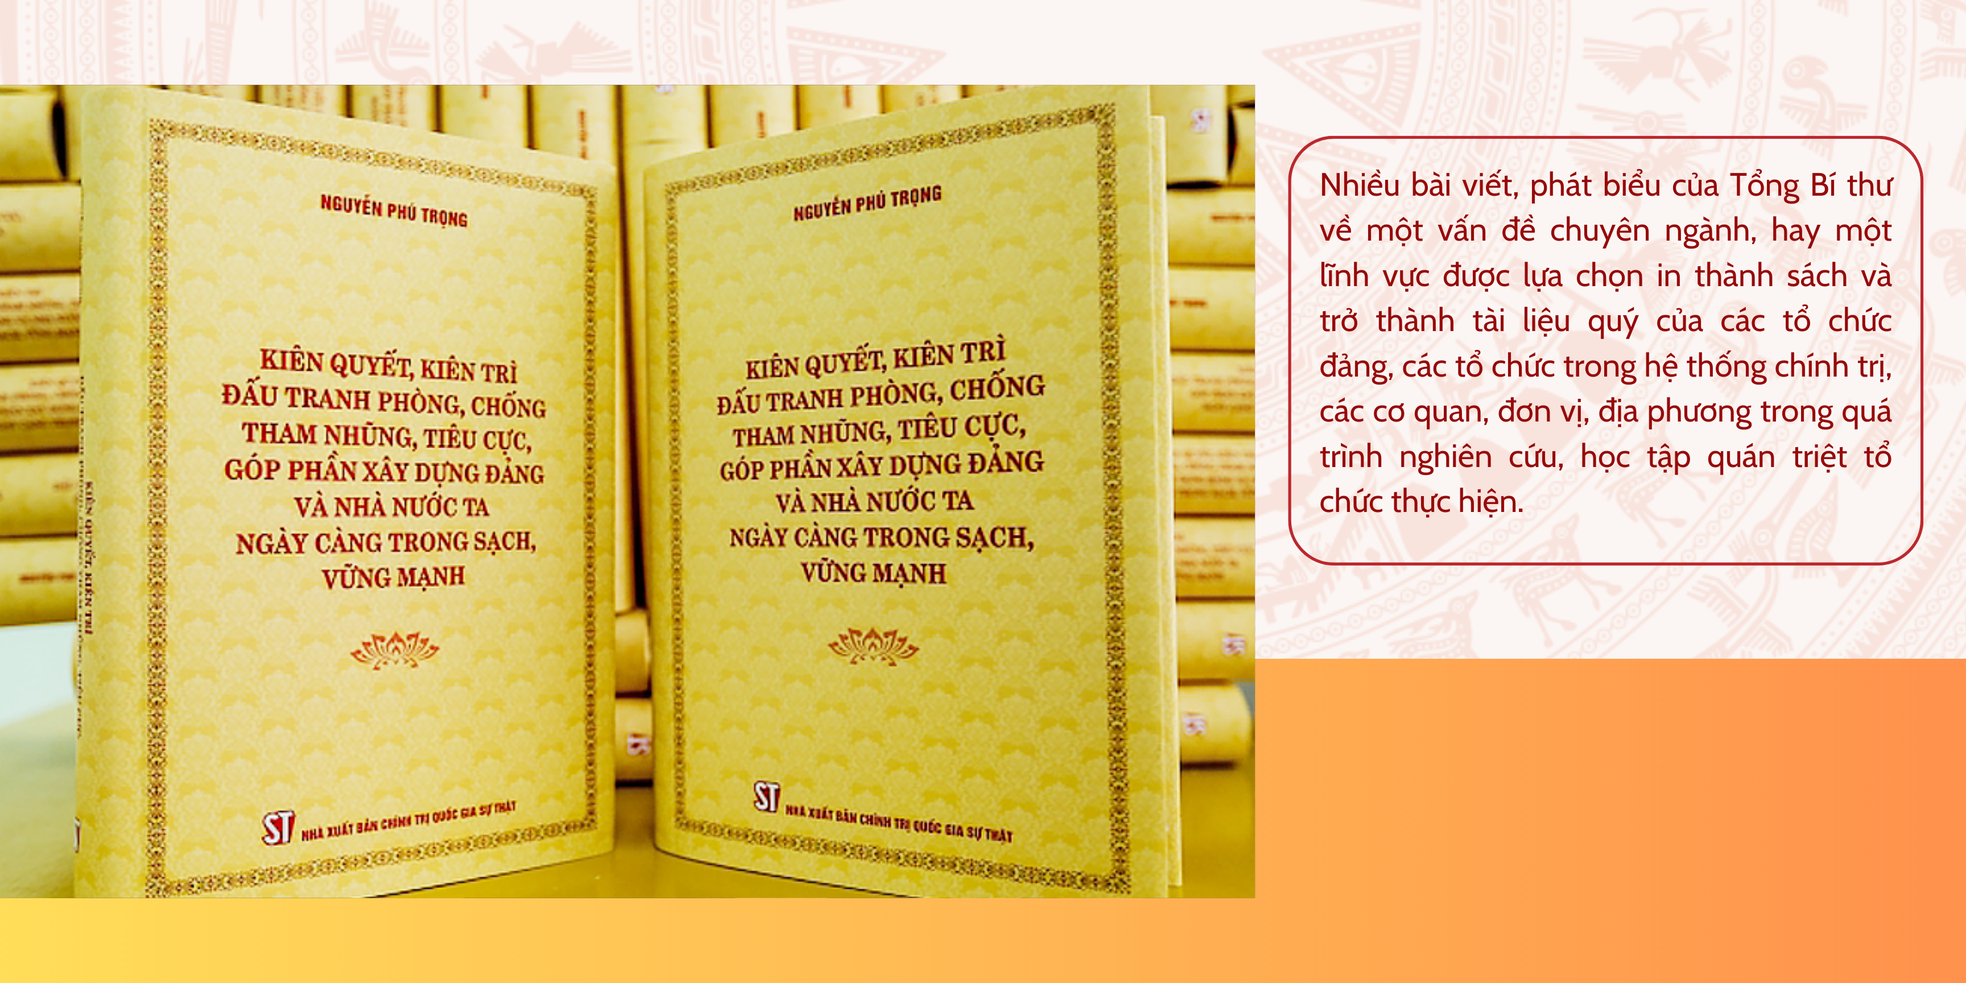 NGUYỄN PHÚ TRỌNG
KIÊN QUYẾT, KIÊN TRÌ
ĐẤU TRANH PHÒNG, CHỐNG
THAM NHŨNG, TIÊU CỰC,
GÓP PHẦN XÂY DỰNG ĐẢNG
VÀ NHÀ NƯỚC TA
NGÀY CÀNG TRONG SẠCH,
VỮNG MẠNH
ST NHÀ XUẤT BẢN CHÍNH TRỊ QUỐC GIA SỰ THẬT
KIÊN QUYẾT, KIÊN TRÌ
NGUYỄN PHÚ TRỌNG
KIÊN QUYẾT, KIÊN TRÌ
ĐẤU TRANH PHÒNG, CHỐNG
THAM NHŨNG, TIÊU CỰC,
GÓP PHẦN XÂY DỰNG ĐẢNG
VÀ NHÀ NƯỚC TA
NGÀY CÀNG TRONG SẠCH,
VỮNG MẠNH
ST NHÀ XUẤT BẢN CHÍNH TRỊ QUỐC GIA SỰ THẬT
Nhiều bài viết, phát biểu của Tổng Bí thư
về một vấn đề chuyên ngành, hay một
lĩnh vực được lựa chọn in thành sách và
trở thành tài liệu quý của các tổ chức
đảng, các tổ chức trong hệ thống chính trị,
các cơ quan, đơn vị, địa phương trong quá
trình nghiên cứu, học tập quán triệt tổ
chức thực hiện.